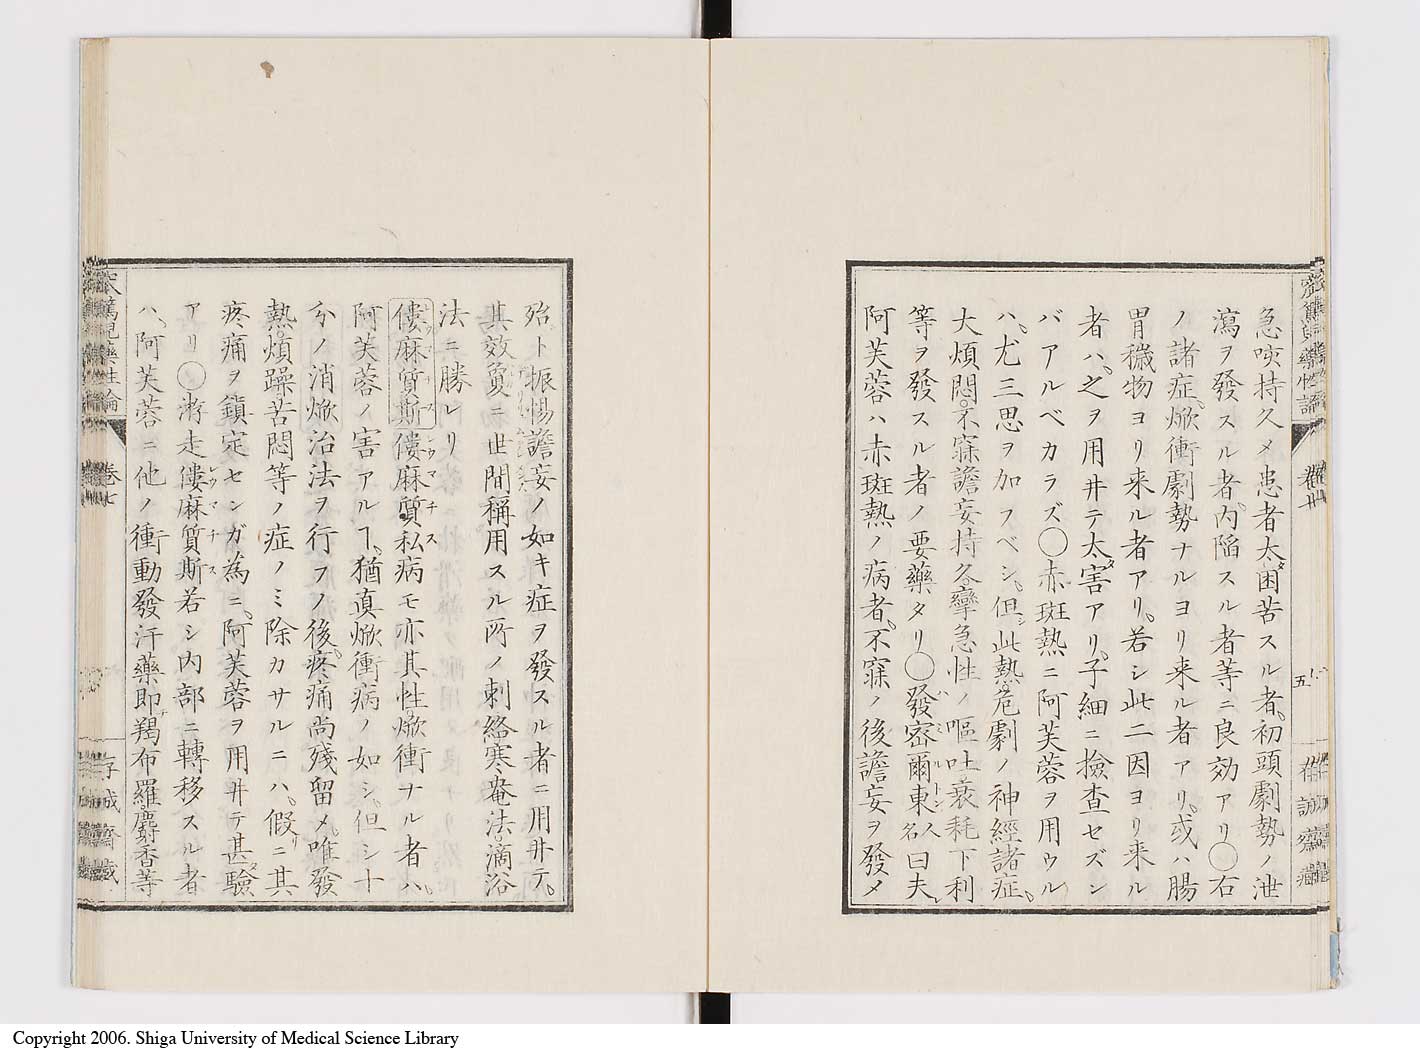 急咳持久メ患者太困苦スル者、初頭劇勢ノ泄
瀉ヲ發スル者、内陥スル者等ニ良効アリ〇右
ノ諸症、焮衝劇勢ナルヨリ来ル者アリ、或ハ腸
胃穢物ヨリ来ル者アリ、若シ此二因ヨリ来ル
者ハ、之ヲ用井テ太害アリ、子細ニ撿査セズン
バアルベカラズ〇赤斑熱ニ阿芙蓉ヲ用ウル
ハ、尤三思ヲ加フベシ、但シ此熱、危劇ノ神經諸症、
大煩悶、不寐譫妄持久攣急性ノ嘔吐衰耗下利
等ヲ發スル者ノ要藥タリ〇發密爾東人名曰夫
阿芙蓉ハ赤斑熱ノ病者、不寐ノ後譫妄ヲ發メ
五
殆ト振惕譫妄ノ如キ症ヲ發スル者ニ用井テ、
其效負ニ世間稱用スル所ノ刺絡寒菴法滴浴
法ニ勝レリ
僂麻質斯 僂麻質私病モ亦其性焮衝ナル者ハ、
阿芙蓉ノ害アルヿ、猶真焮衝病ノ如シ、但シ十
分ノ消焮治法ヲ行フノ後、疼痛尚殘留メ、唯發
熱煩躁苦悶等ノ症ノミ除カサルニハ、假リニ其
疼痛ヲ鎮定センガ為ニ、阿芙蓉ヲ用井テ甚タ驗
アリ〇游走僂麻質斯若シ内部ニ轉移スル者
ハ、阿芙蓉ニ他ノ衝動發汗藥即チ羯布羅麝香等
卷七